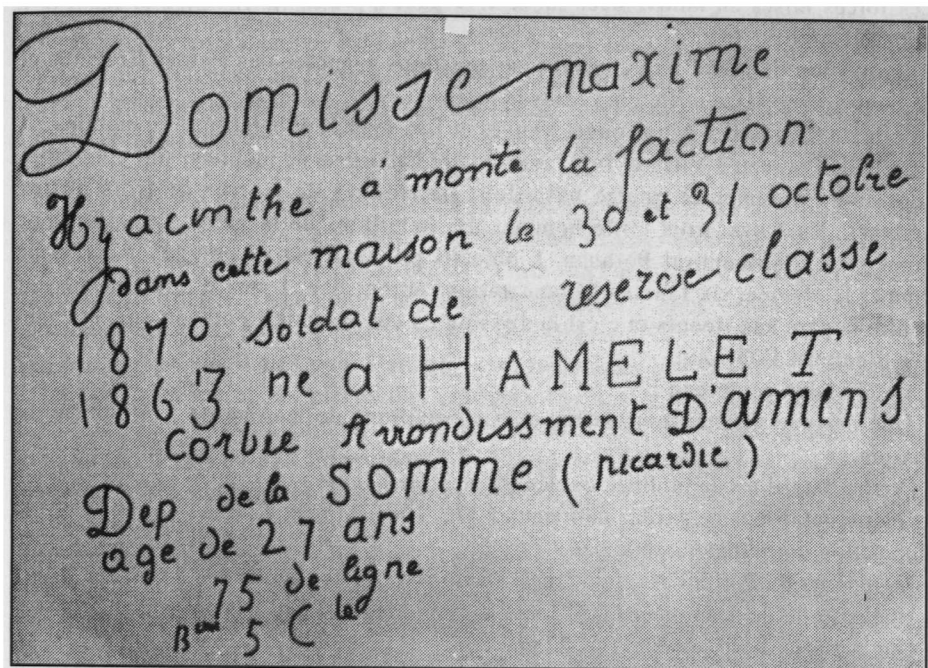 Domisse maxime
Hyacinthe a monté la faction
dans cette maison le 30 et 31 octobre
1870 soldat de reserve classe
1863 ne a HAMELET
Corbie Arrondissment D'amiens
Dep de la SOMME (picardie)
age de 27 ans
75 de ligne
Bon 5 C le